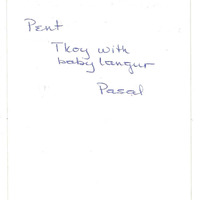 Pent
Tkoy with
baby langur
Pasal